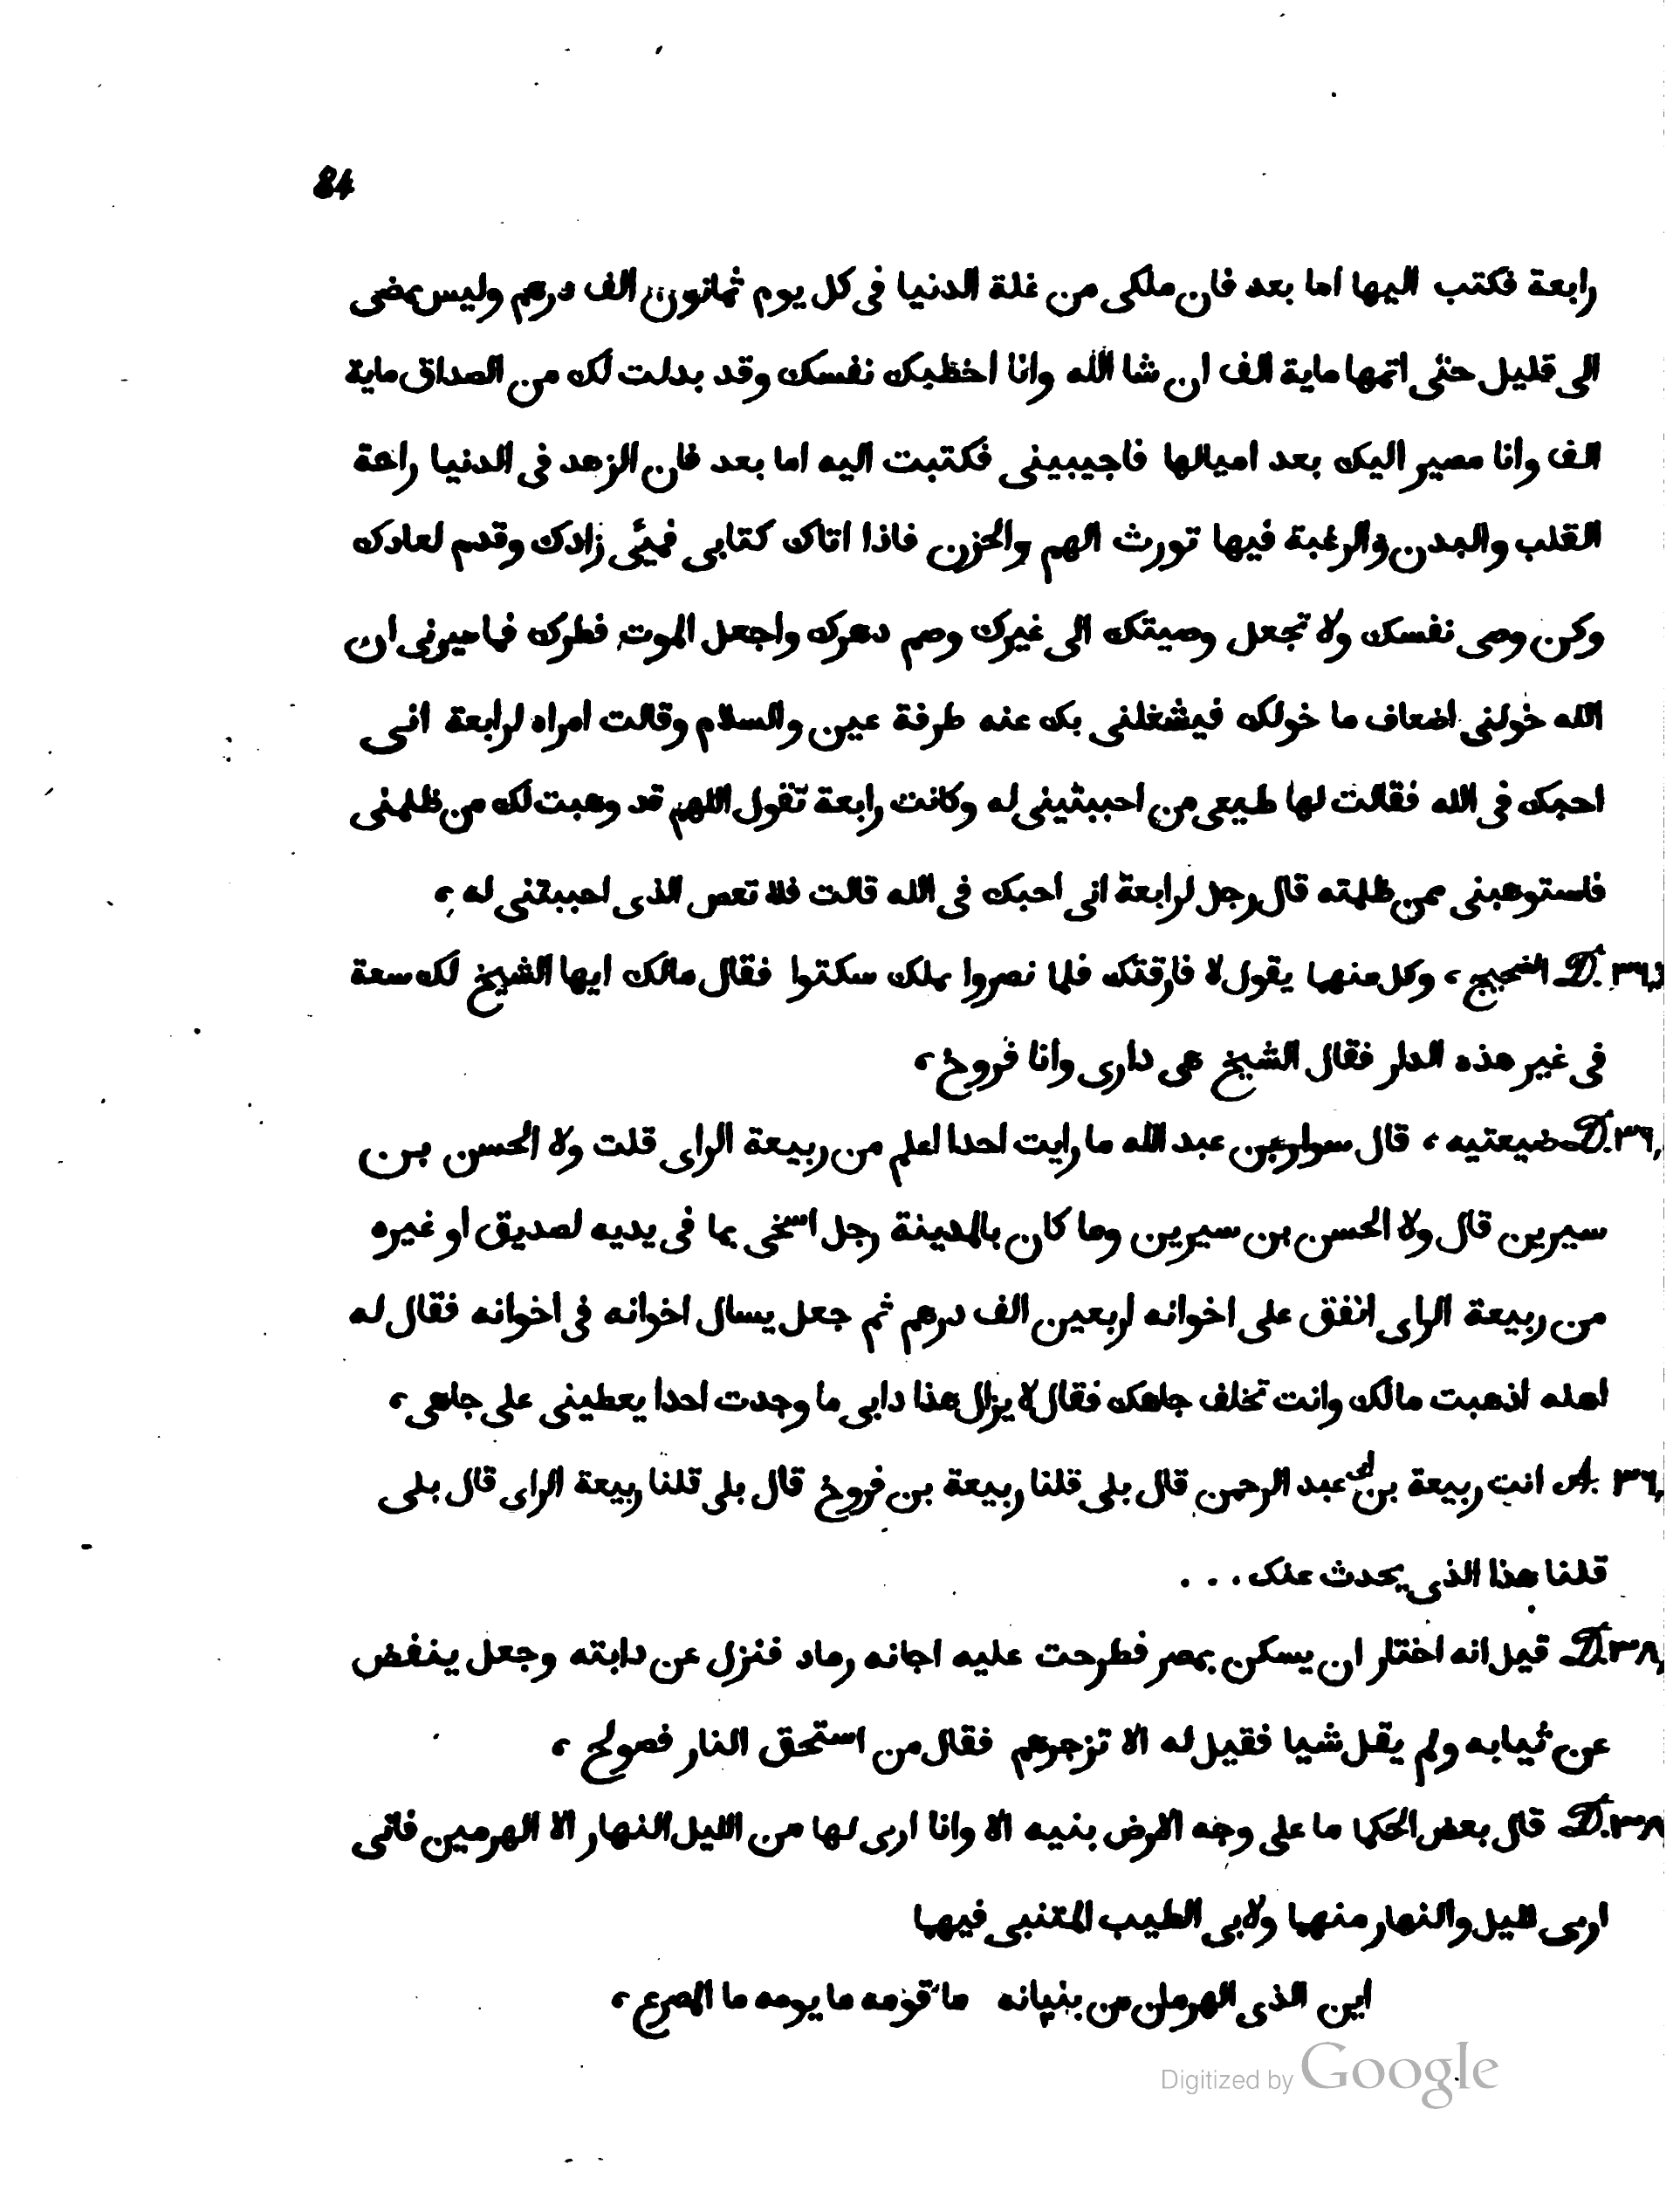 84
رابعة فكتب اليها اما بعد فان ملكى من غلة الدنيا فى كل يوم ثمانون الف درهم وليس يمضى
الى قليل حتى اتمها ماية الف ان شا الله وانا اخطبك نفسك وقد بدلت لك من الصداق ماية
الف وانا مصير اليك بعد اميالها فاجيبينى فكتبت اليه اما بعد فان الزهد فى الدنيا راحة
القلب والبدن والرغبة فيها تورث الهم والحزن فاذا اتاك كتابى فهيّى زادك وقدم لعادك
وكن وصى نفسك ولا تجعل وصيتك الى غيرك وصم دهرك واجعل الموت فطرك فما ميرنى ان
الله خولنى اضعاف ما خولك فيشغلنى بك عنه طرفة عين والسلام وقالت امراه لرابعة انى
احبك فى الله فقالت لها طيعى من احببتينى له وكانت رابعة تقول اللهم قد وهبت لك من ظلمنى
فاستوهبنى ممن ظلمته قال رجل لرابعة انى احبك فى الله قالت فلا تعص الذى احببتنى له ،
٣٦,D. الضجيج ، وكل منهما يقول لا فارقتك فلما نصروا بملك سكتوا فقال مالك ايها الشيخ لك سعة
فى غير هذه الدار فقال الشيخ هى دارى وانا فروخ ،
٣٦,D. ضيعتيه ، قال سوار بن عبد الله ما رايت احدا اعلم من ربيعة الراى قلت ولا الحسن بن
سيرين قال ولا الحسن بن سيرين وما كان بالمدينة رجل اسخى بما فى يديه لصديق او غيره
من ربيعة الراى انفق على اخوانه اربعين الف درهم ثم جعل يسال اخوانه فى اخوانه فقال له
اهله اذهبت مالك وانت تخلف جاهك فقال لا يزال هذا دابى ما وجدت احدا يعطينى على جاهى ،
٣٦,A. انت ربيعة بن ابى عبد الرحمن قال بلى قلنا ربيعة بن فروخ قال بلى قلنا ربيعة الراى قال بلى
قلنا هذا الذى يحدث عنك . . .
٣٨,D. قيل انه اختار ان يسكن بمصر فطرحت عليه اجانه رماد فنزل عن دابته وجعل ينفض
عن ثيابه ولم يقل شيا فقيل له الا تزجرهم فقال من استحق النار فصولح ،
٣٨,D. قال بعض الحكما ما على وجه الارض بنيه الا وانا ارى لها من الليل النهار الا الهرمين فانى
ارى لليل والنهار منهما ولابى الطيب المتنبى فيهما
اين الذى الهرمان من بنيانه ما قومه ما يومه ما المصرع ،
Digitized by Google